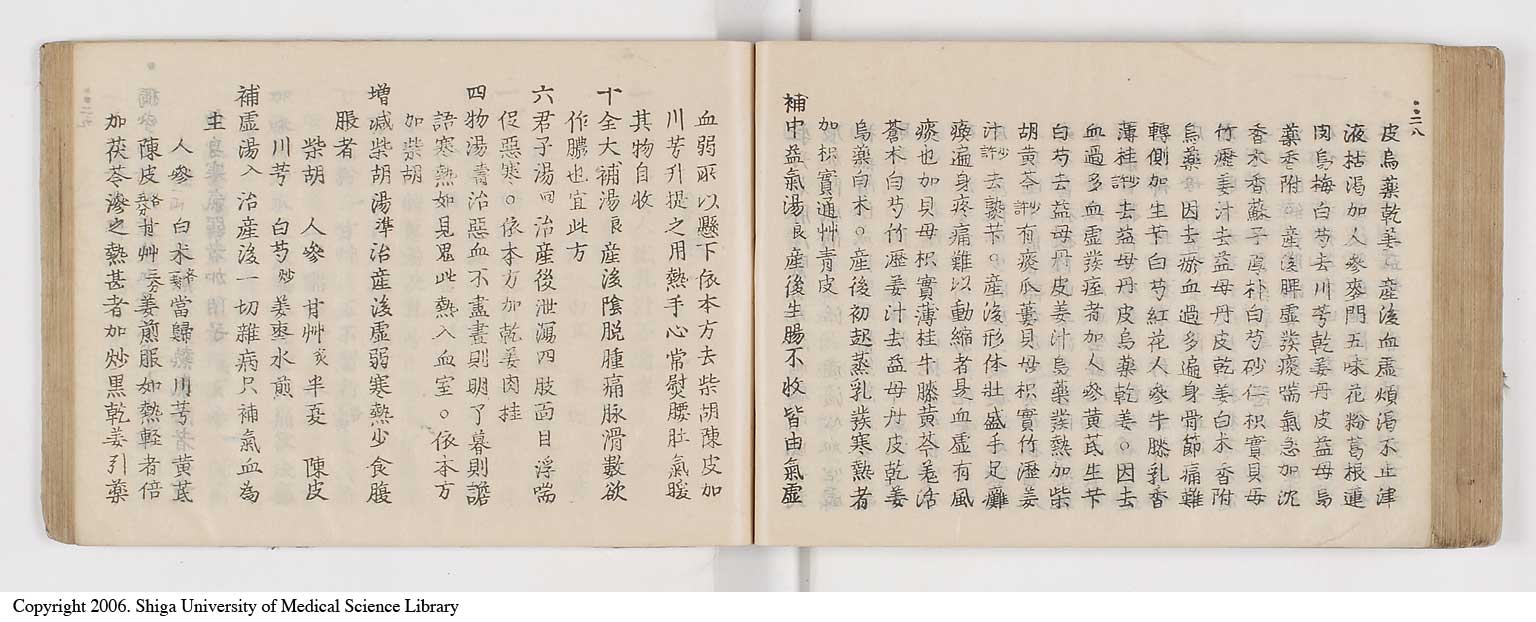 二八
皮烏藥乾姜産後血虛煩渴不止津
液枯渴加人參麥門五味花粉葛根蓮
肉烏梅白芍去川芎乾姜丹皮益母烏
藥香附産後脾虛發痰喘氣急加沉
香木香蘇子厚朴白芍砂仁枳實貝母
竹瀝姜汁去益母丹皮乾姜白朮香附
烏藥因去瘀血過多遍身骨節痛難
轉側加生芐白芍紅花人參牛膝乳香
薄桂炒許去益母丹皮烏藥乾姜。因去
血過多血虛發痓者加人參黃芪生芐
白芍去益母丹皮姜汁烏藥發熱加柴
胡黃芩炒許有痰瓜蔞貝母枳實竹瀝姜
汁炒許去熟芐。産後形体壯盛手足癱
瘓遍身疼痛難以動縮者是血虛有風
痰也加貝母枳實薄桂牛膝黃芩羌活
蒼朮白芍竹瀝姜汁去益母丹皮乾姜
烏藥白朮。産後初起蒸乳發寒熱者
加枳實通艸青皮
補中益氣湯良産後生腸不收皆由氣虛
血弱所以懸下依本方去柴胡陳皮加
川芎升提之用熱手心常熨腰肚氣暖
其物自收
十全大補湯良産後陰脱腫痛脉滑數欲
作膿也宜此方
六君子湯回治産後泄瀉四肢面目浮喘
促惡寒。依本方加乾姜肉桂
四物湯壽治惡血不盡晝則明了暮則譫
語寒熱如見鬼此熱入血室。依本方
加柴胡
増减柴胡湯準治産後虛弱寒熱少食腹
脹者
柴胡 人參 甘艸炙 半夏 陳皮
川芎 白芍炒 姜棗水煎
補虛湯入治産後一切雜病只補氣血為
主
人參 白朮 當歸 川芎 黃芪
陳皮 甘艸 姜煎服如熱輕者倍
加茯苓滲之熱甚者加炒黑乾姜引藥